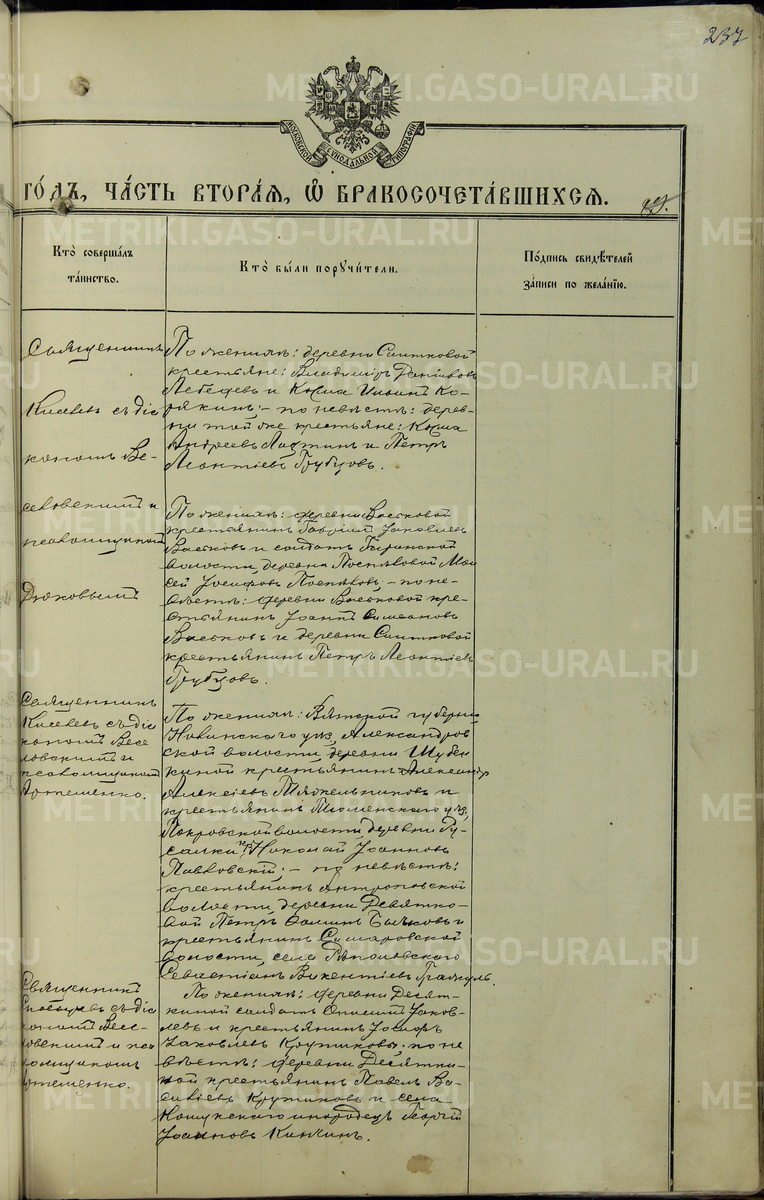 237
МОСКОВСКОЙ СѴНОДАЛЬНОЙ ТИПОГРАФІИ
ГО́ДЪ, ЧА́СТЬ ВТОРА́Я, Ѡ҆ БРАКОСОЧЕТА́ВШИХСЯ.
Кто̀ соверша́лъ
та́инство.
Кто̀ бы́ли порꙋчи́тели.
По́дпись свидѣ́телей
за́писи по жела́нїю.
Священникъ
Киселевъ съ діа
кономъ Ве-
селовскимъ и
псаломщикомъ
По женихѣ: деревни Ситковой
крестьяне: Владиміръ
Лебедевъ и Косма Ильинъ Ко-
рякинъ; - по невѣстѣ: дерев-
ни той же крестьяне: Косма
Андреевъ и Петръ
Леонтіевъ Грубцовъ.
По женихѣ: деревни Васьковой
крестьянинъ Гавріилъ Іаковлевъ
Васьковъ и солдатъ
волости, деревни Поспѣловой Мои
сей Іосифовъ Поспѣловъ, - по не-
вѣстѣ: деревни Васьковой кре-
стьянинъ Іоаннъ Симеоновъ
Васьковъ и деревни Ситковой
крестьянинъ Петръ Леонтіевъ
Грубцовъ.
Священникъ
Киселевъ съ діа
кономъ Весе
ловскимъ и
псаломщикомъ
Артешенко.
По женихѣ: Вятской губерніи
уѣз. Александров
ской волости, деревни Шубен
киной крестьянинъ Александръ
Алексіевъ Мѣхельниковъ и
крестьянинъ Тюменскаго уѣз.
Покровской волости, деревни Ру-
салки Николай Іоанновъ
Павковскій; - по невѣстѣ:
крестьянинъ Антроповской
волости, деревни Девятко-
вой Петръ Ѳоминъ Быковъ и
крестьянинъ Самаровской
волости, села Рѣполовскаго
Севастіанъ Викентіевъ
Священникъ
съ діа
кономъ Весе-
ловскимъ и пса
ломщикомъ
Артешенко.
По женихѣ: деревни Десят-
киной солдатъ Іаков-
левъ и крестьянинъ Іосифъ
Іаковлевъ Крутиковы. по не
вѣстѣ: деревни Десятки-
ной крестьянинъ Павелъ Ва-
силіевъ Крутиковъ и села
инородецъ Георгій
Іоанновъ Кинчинъ.
METRIKI.GASO-URAL.RU